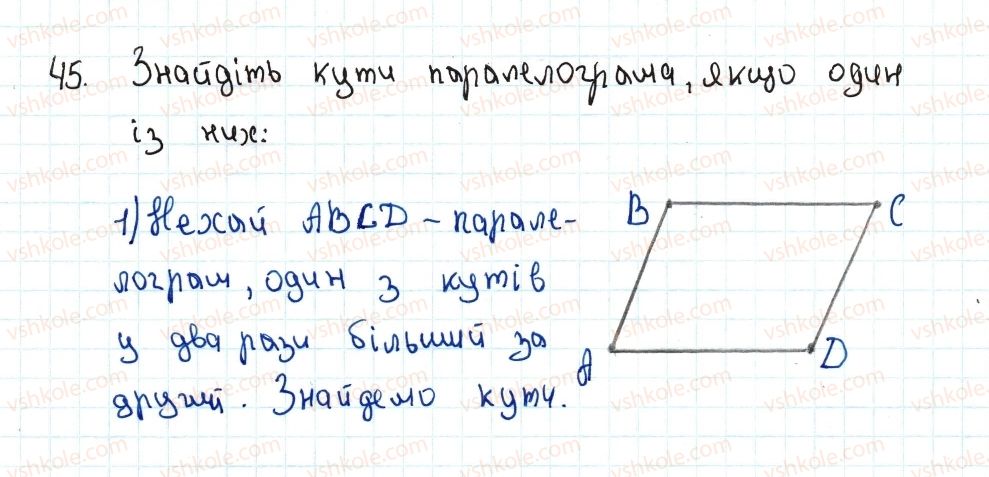 45. Знайдіть кути паралелограма, якщо один
із них:
1) Нехай ABCD – парале-
лограм, один з кутів
у два рази більший за
другий. Знайдемо кути.
B
C
A
D
vshkole.com